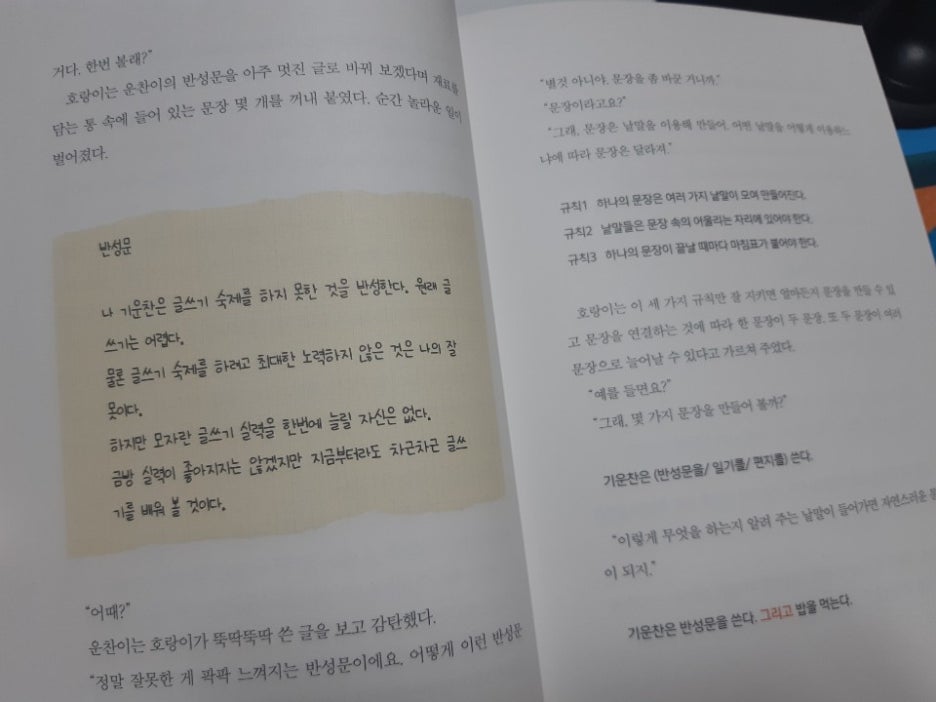 거다. 한번 볼래?"
호랑이는 운찬이의 반성문을 아주 멋진 글로 바꿔 보겠다며 재료를
담는 통 속에 들어 있는 문장 몇 개를 꺼내 붙였다. 순간 놀라운 일이
벌어졌다.
반성문
나 기운찬은 글쓰기 숙제를 하지 못한 것을 반성한다. 원래 글
쓰기는 어렵다.
물론 글쓰기 숙제를 하려고 최대한 노력하지 않은 것은 나의 잘
못이다.
하지만 모자란 글쓰기 실력을 한번에 늘릴 자신은 없다.
금방 실력이 좋아지지는 않겠지만 지금부터라도 차근차근 글쓰
기를 배워 볼 것이다.
"어때?"
운찬이는 호랑이가 뚝딱뚝딱 쓴 글을 보고 감탄했다.
"정말 잘못한 게 팍팍 느껴지는 반성문이에요. 어떻게 이런 반성문
"별것 아니야. 문장을 좀 바꾼 거니까."
"문장이라고요?"
"그래, 문장은 낱말을 이용해 만들어. 어떤 낱말을 어떻게 이용하느
냐에 따라 문장은 달라져."
규칙1 하나의 문장은 여러 가지 낱말이 모여 만들어진다.
규칙2 낱말들은 문장 속의 어울리는 자리에 있어야 한다.
규칙3 하나의 문장이 끝날 때마다 마침표가 붙어야 한다.
호랑이는 이 세 가지 규칙만 잘 지키면 얼마든지 문장을 만들 수 있
고 문장을 연결하는 것에 따라 한 문장이 두 문장, 또 두 문장이 여러
문장으로 늘어날 수 있다고 가르쳐 주었다.
"예를 들면요?"
"그래, 몇 가지 문장을 만들어 볼까?"
기운찬은 (반성문을/ 일기를/ 편지를) 쓴다.
"이렇게 무엇을 하는지 알려 주는 낱말이 들어가면 자연스러운
이 되지."
기운찬은 반성문을 쓴다. 그리고 밥을 먹는다.